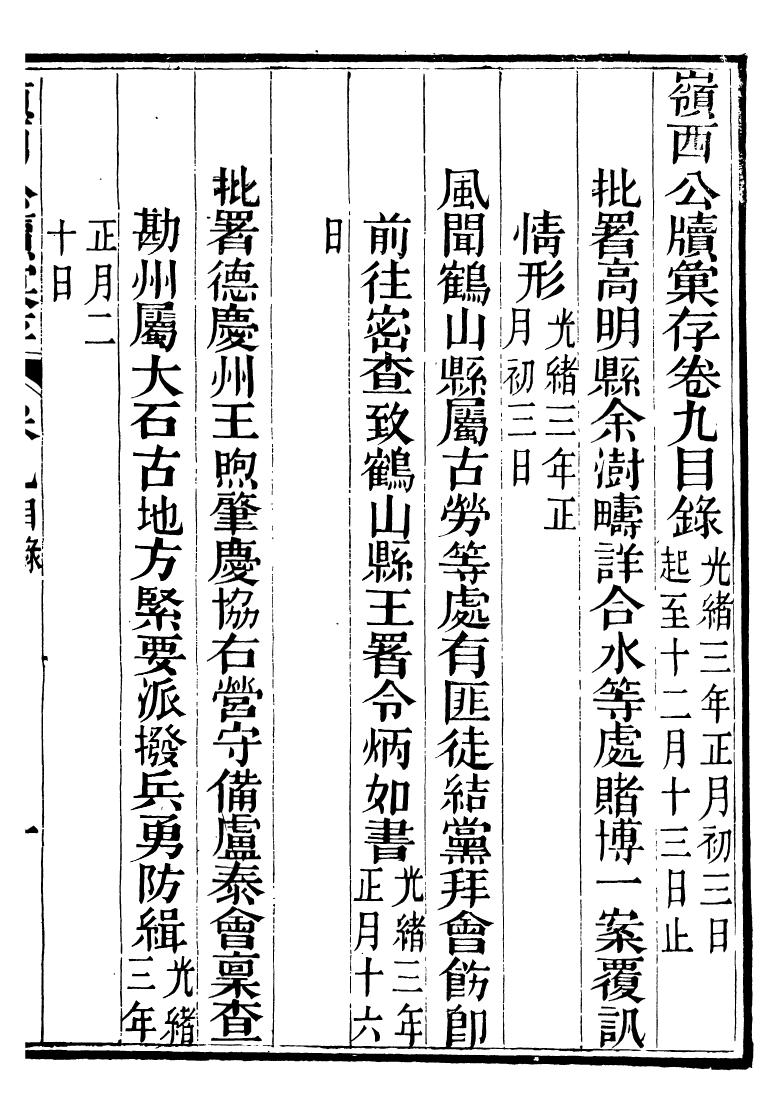 嶺西公牘彙存卷九目錄光緒三年正月初三日
起至十二月十三日止
批署高明縣余澍疇詳合水等處賭博一案覆訊
情形光緒三年正
月初三日
風聞鶴山縣屬古勞等處有匪徒結黨拜會飭卽
前往密查致鶴山縣王署令炳如書光緒三年
正月十六
日
批署德慶州王煦肇慶協右營守備盧泰會稟查
勘州屬大石古地方緊要派撥兵勇防緝光緒
三年
正月二
十日
目錄
一